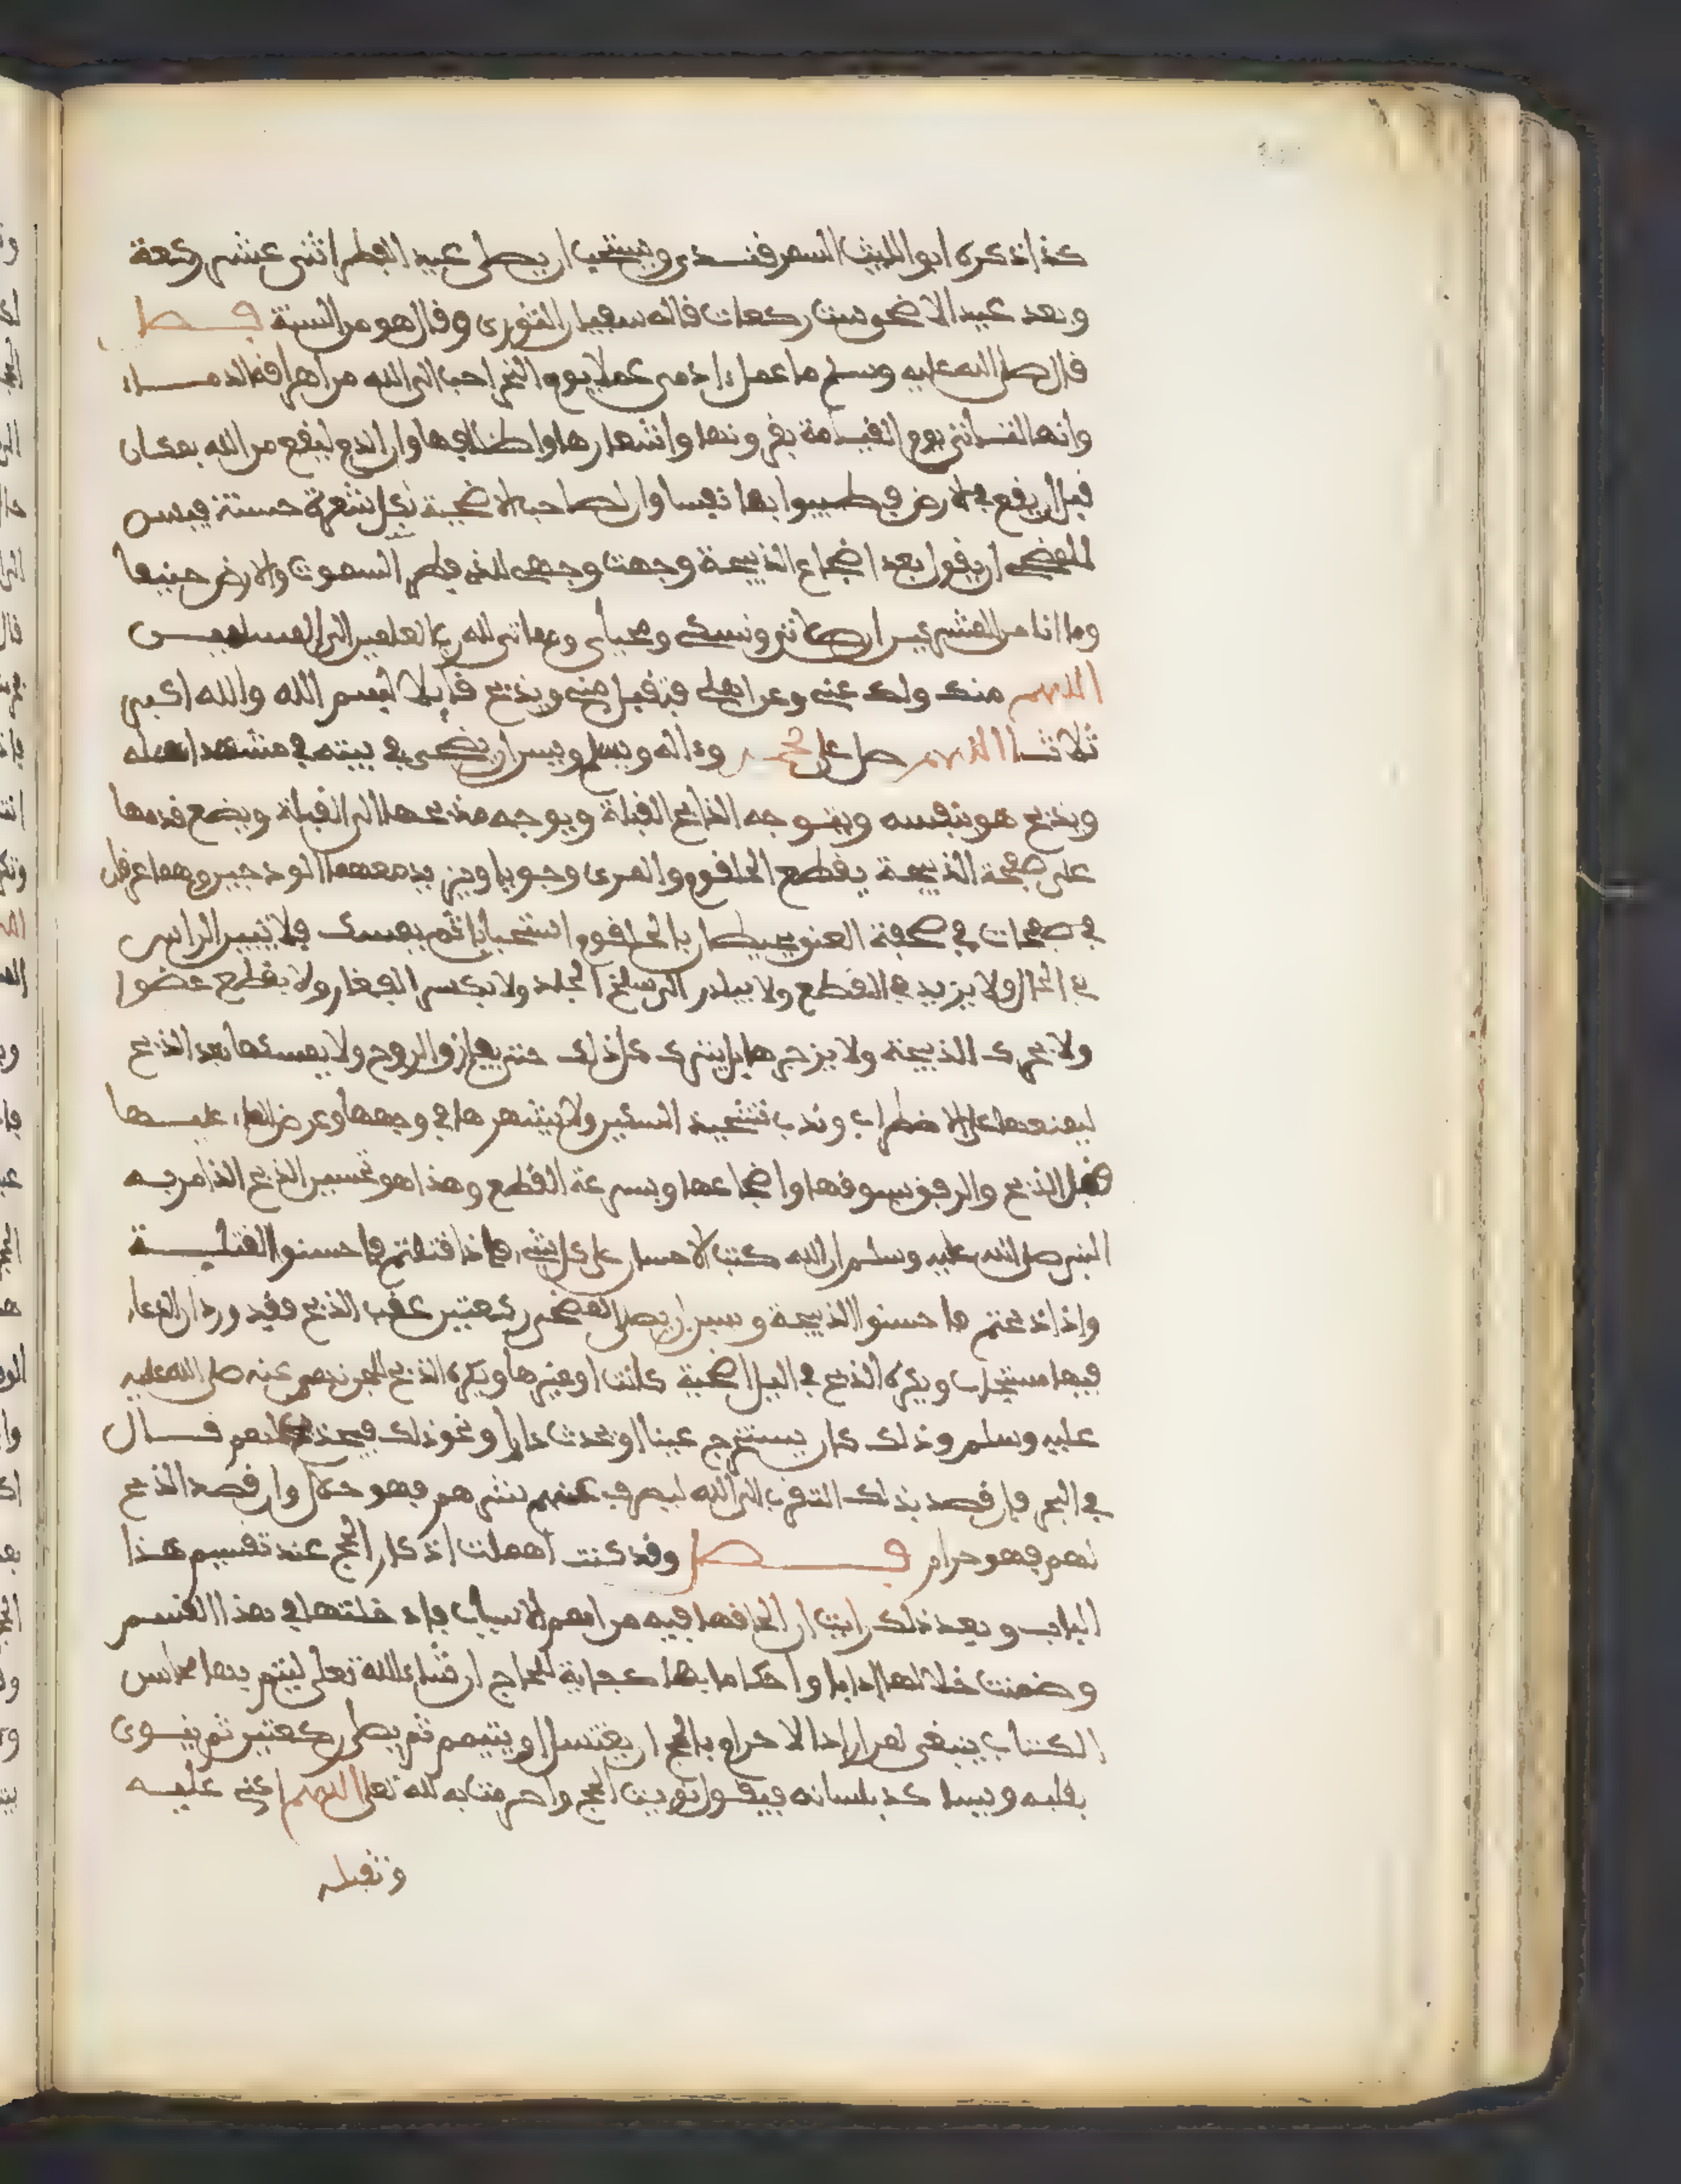 كذا ذكره ابو الليث السمرقندي ويستحب ان يصلى عيد الفطر اثنى عشر ركعة
وبعد عيد الاضحى ست ركعات قاله سفيان الثورى وقال هو من السنة فصل
قال صلى الله عليه وسلم ما عمل ءادمى عملا يوم النحر احب الى الله من اهراق الدماء
وانها لتاتى يوم القيامة بقرونها واشعارها واظلافها وان الدم ليقع من الله بمكان
قبل ان يقع فى الارض فطيبوا بها نفسا وان لصاحب الاضحية بكل شعرة حسنة فيسن
للمضحى ان يقول بعد اضجاع الذبيحة وجهت وجهى للذى فطر السموت والارض حنيفا
وما انا من المشركين ان صلاتى ونسكى ومحياى ومماتى لله رب العلمين الى المسلمين
اللهم منك ولك عنى وعن اهلى فتقبل منى ويذبح قايلا بسم الله والله اكبر
ثلاثا اللهم صل على محمد وءاله وسلم ويسن ان يضحى فى بيته فى مشهد اهله
ويذبح هو بنفسه ويتوجه الذابح القبلة ويوجه مذبحها الى القبلة ويضع قدمها
على صفحة الذبيحة يقطع الحلقوم والمرى وجوبا ويزيد معهما الودجين وهما عرقان
فى صفحات فى صفحة العنق يحيطان بالحلقوم استحبابا ثم يمسك فلا يبين الراس
فى الحال ولا يزيد فى القطع ولا يبادر الى سلخ الجلد ولا يكسر الفقار ولا يقطع عضوا
ولا يحرك الذبيحة ولا يزجرها بل يترك كل ذلك حتى يفارق الروح ولا يمسكها بعد الذبح
ليمنعها على الاضطراب وندب تشحيذ السكين ولا يشهرها فى وجهها وعرض الماء عليها
قبل الذبح والرفق بسوقها واضجاعها وبسرعة القطع وهذا هو تحسين الذبح الذ امر به
النبى صلى الله عليه وسلم ان الله كتب الاحسان على كل شىء فاذا قتلتم فاحسنوا القتلة
واذا ذبحتم فاحسنوا الذبيحة وسن ان يصلى المضحى ركعتين عقب الذبح فقد ورد ان الدعاء
فيها مستجاب ويكره الذبح فى اليل اضحية كانت او غيرها ويكره الذبح للجن نهى عنه صلى الله عليه
عليه وسلم وذلك كان يستخرج عينا او يحدث دارا ونحو ذلك فيذبح لهم قال
فى البحر فان قصد بذلك التقرب الى الله ليصرف عنهم شرهم فهو حلال وان قصد الذبح
لهم فهو حرام فصل وقد كنت اهملت اذكار الحج عند تقسيم هذا
الباب وبعد ذلك رايت ان الحاقها فيه من اهم الاسباب فادخلتها فى هذا القسم
وضمنت خلالها ادابا واحكاما بها كفاية للحاج ان شاء الله تعلى ليتم بها محاسن
الكتاب ينبغى لمن اراد الاحرام بالحج ان يغتسل او يتيمم ثم يصلى ركعتين ثم ينوى
بقلبه ويساكد بلسانه فيقول نويت الحج واحرمت به لله تعلى اللهم اعنى عليه
وتقبله